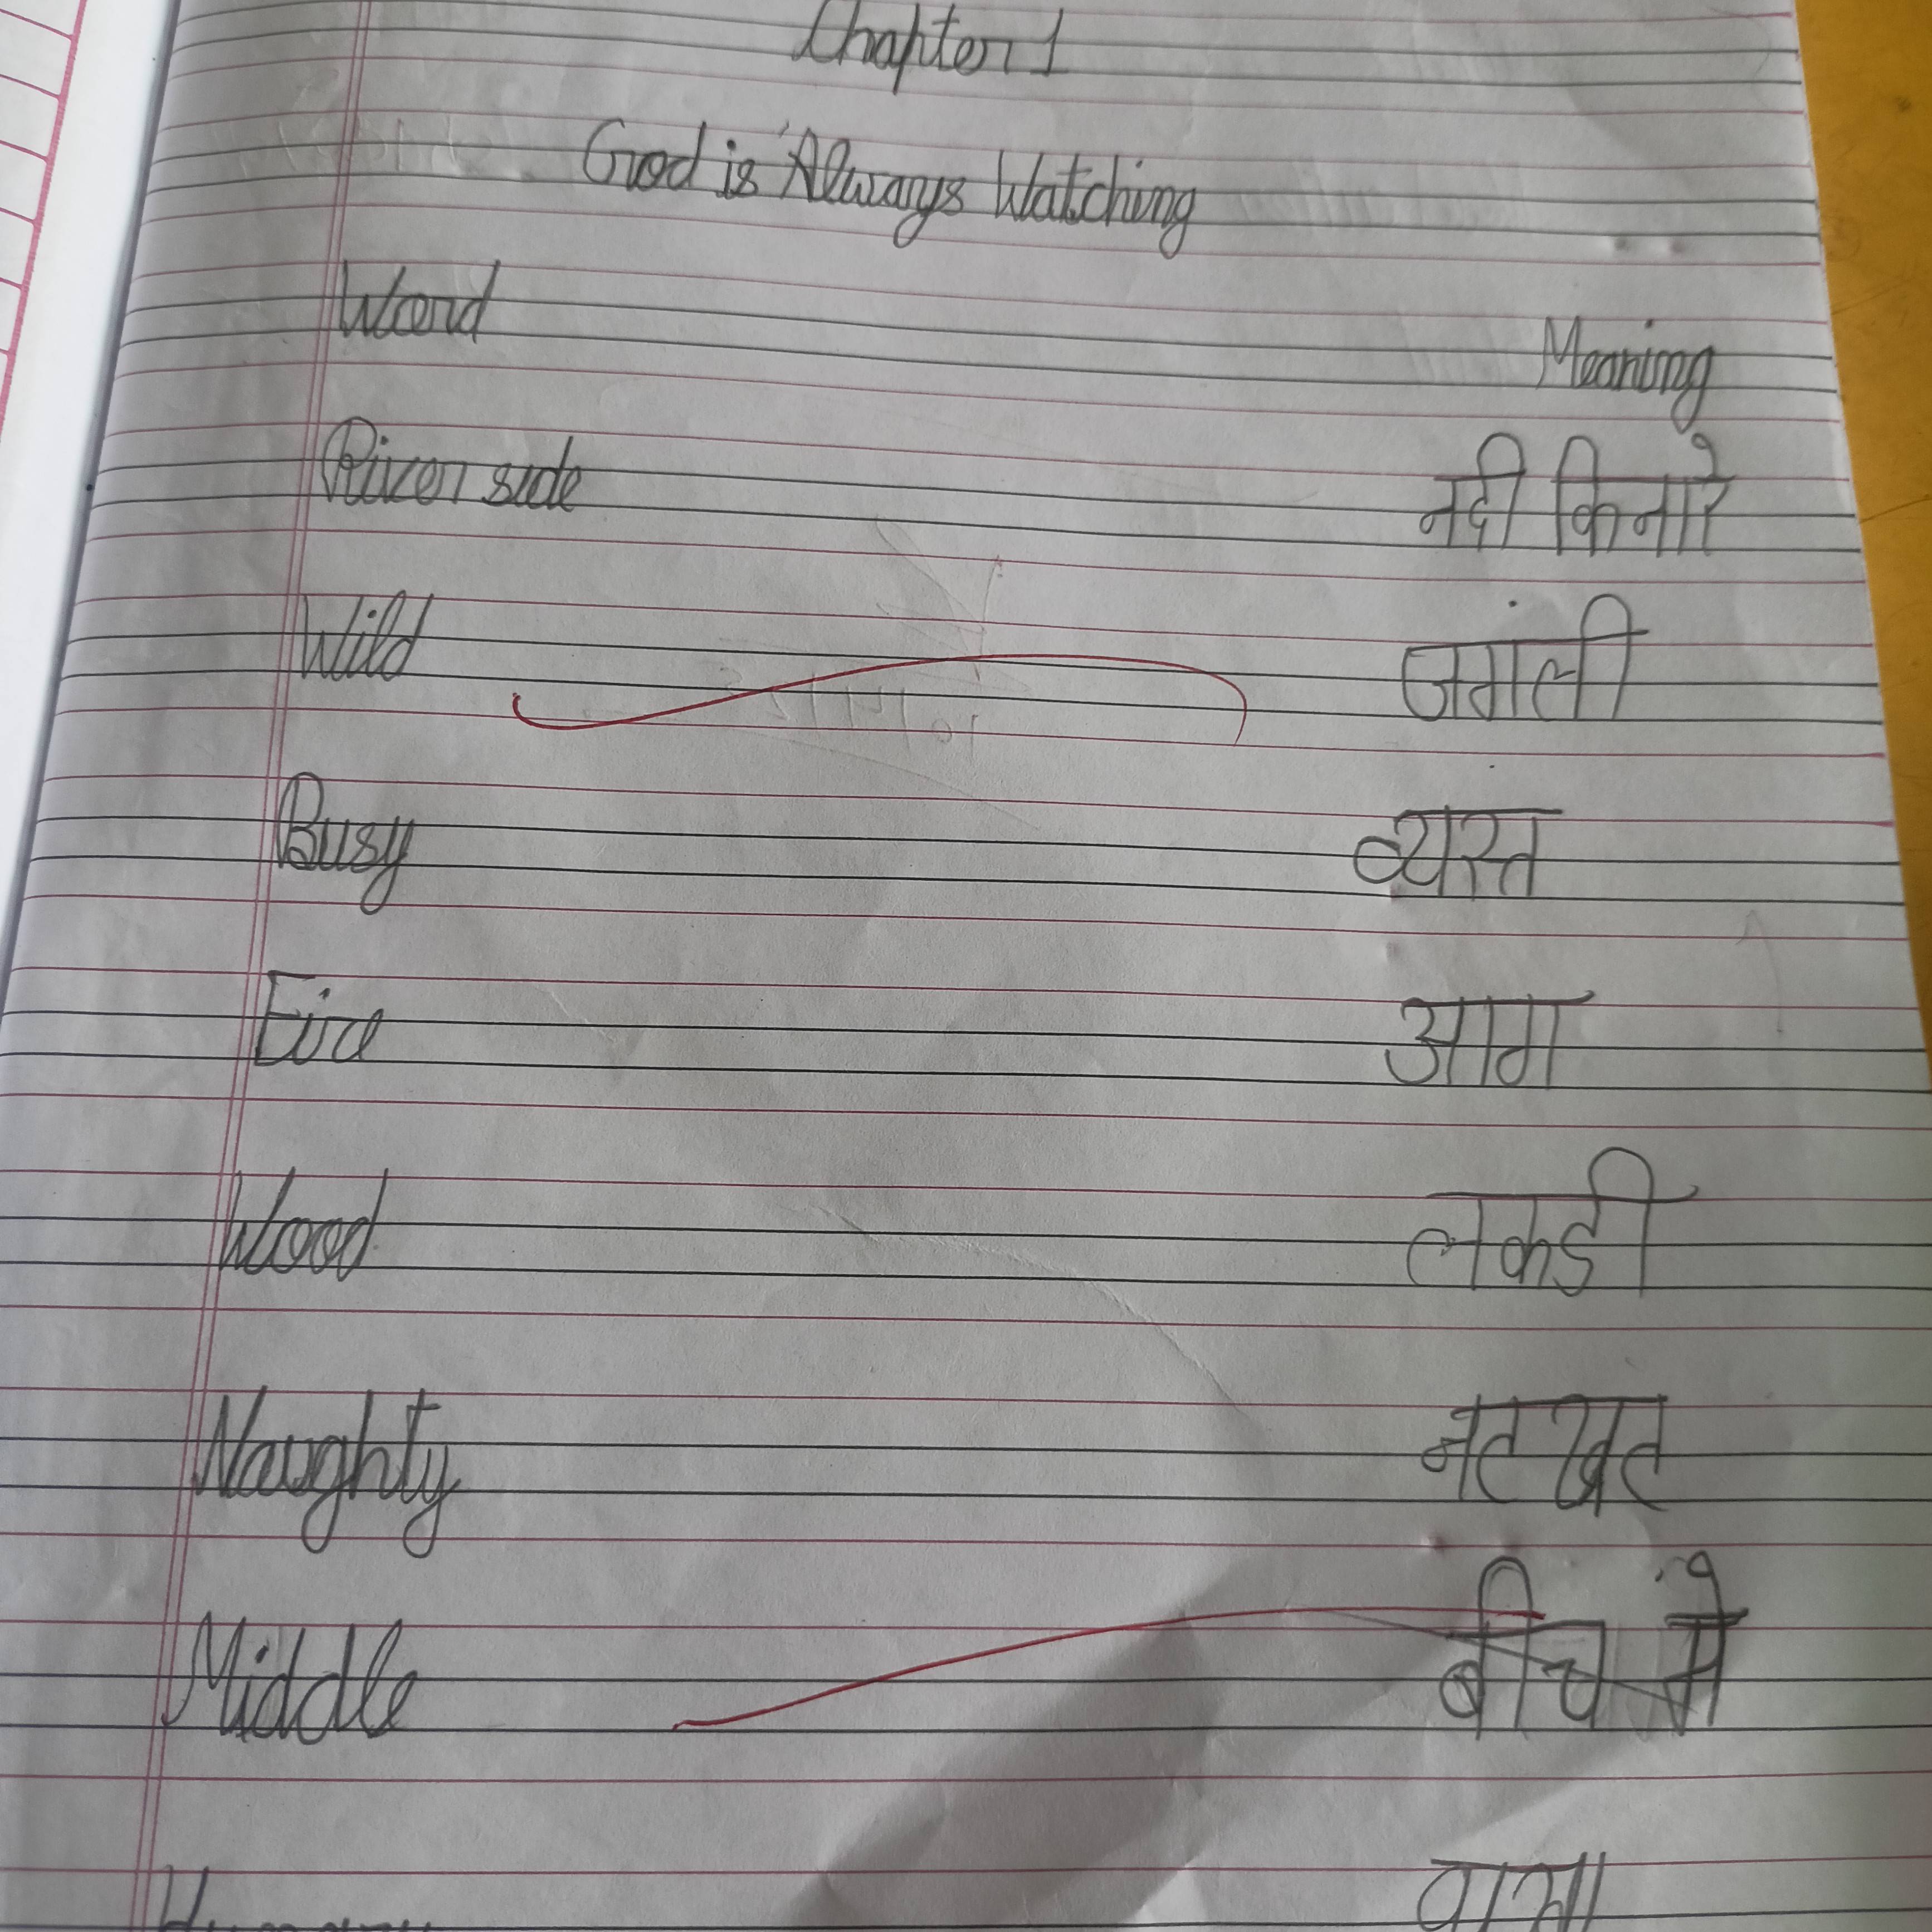 Chapter 1
God is Always Watching
Word Meaning
River side नदी किनारे
Wild जंगली
Busy व्यस्त
Fire आग
Wood लकडी
Naughty नट खट
Middle बीच में